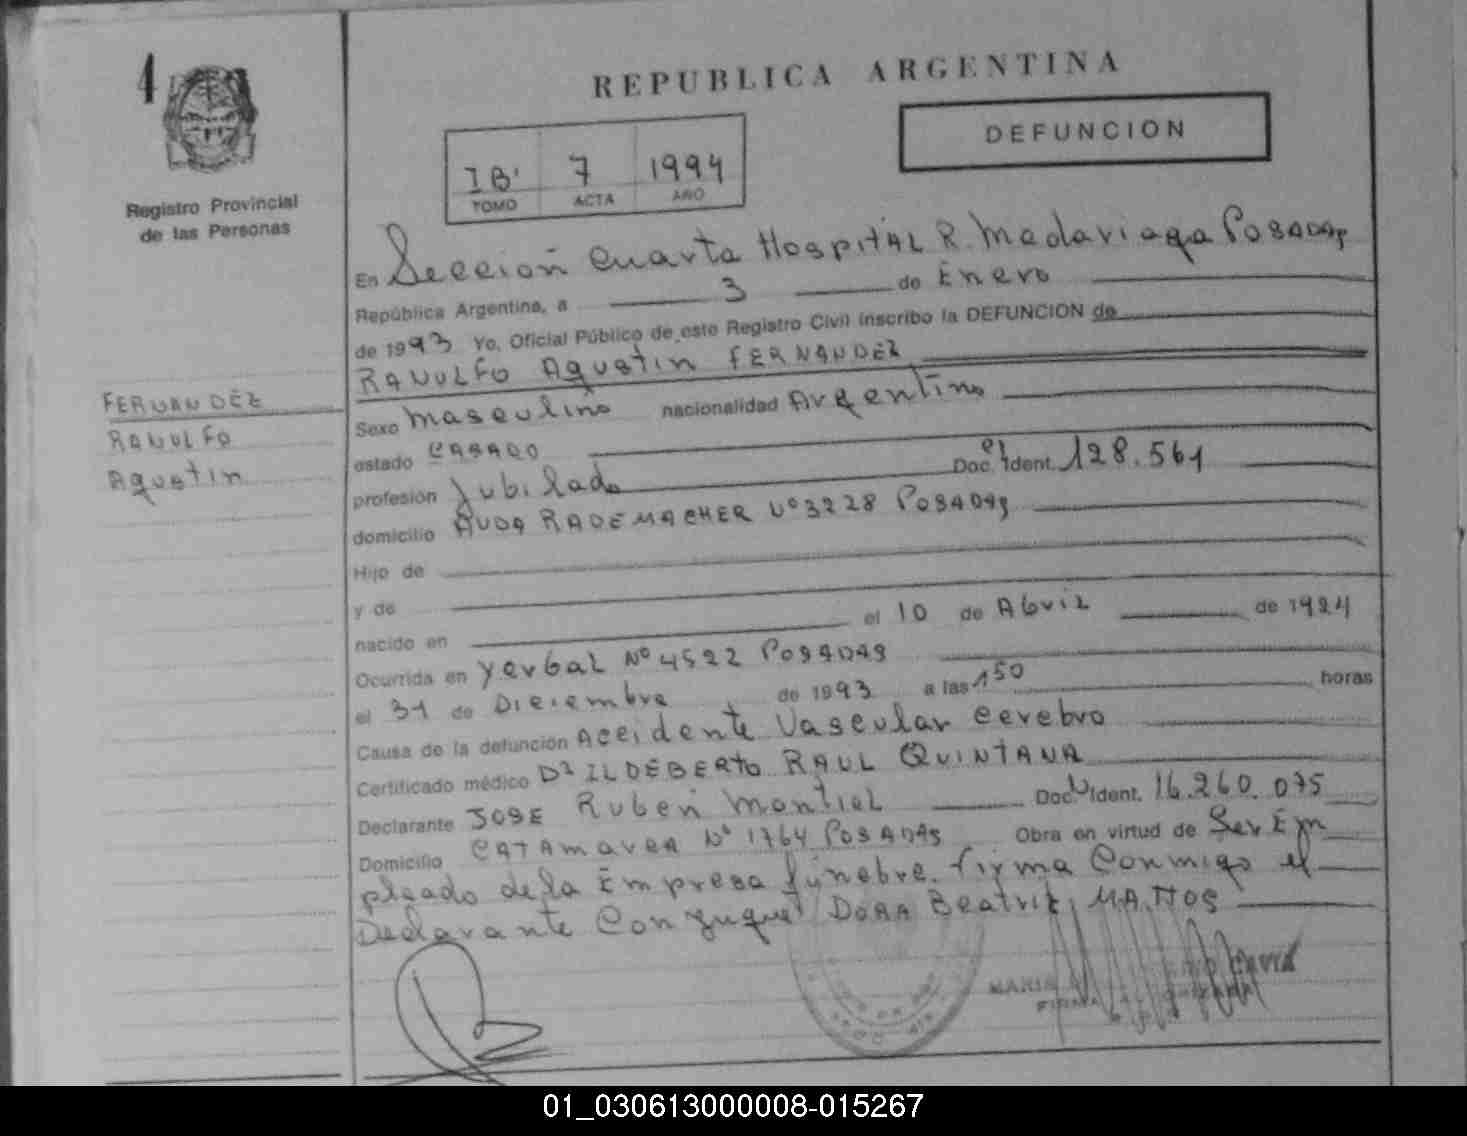 1
REPUBLICA ARGENTINA
DEFUNCION
IB' 7 1994
TOMO ACTA AÑO
Registro Provincial
de las Personas
FERNANDEZ
RANULFO
Agustin
En Sección Cuarta Hospital R. Madariaga Posadas
República Argentina, a 3 de Enero
de 1993 Yo, Oficial Público de este Registro Civil inscribo la DEFUNCION de
RANULFO Agustin FERNANDEZ
Sexo masculino nacionalidad Argentino
estado CASADO
profesión Jubilado Doc. Ident. 128.561
domicilio AVDA RADEMACHER Nº 3228 POSADAS
Hijo de
y de
nacido en el 10 de Abril de 1924
Ocurrida en Yerbal Nº 4522 POSADAS
el 31 de Diciembre de 1993 a las 1 50 horas
Causa de la defunción Accidente Vascular cerebro
Certificado médico Dr ILDEBERTO RAUL QUINTANA
Declarante JOSE Ruben Montiel Doc. Ident. 16.260.075
Domicilio CATAMARCA Nº 1764 POSADAS Obra en virtud de Ser Em
pleado de la Empresa fúnebre. firma Conmigo el
Declarante Conyugue DORA Beatriz MATTOS
MARIA
01_030613000008-015267